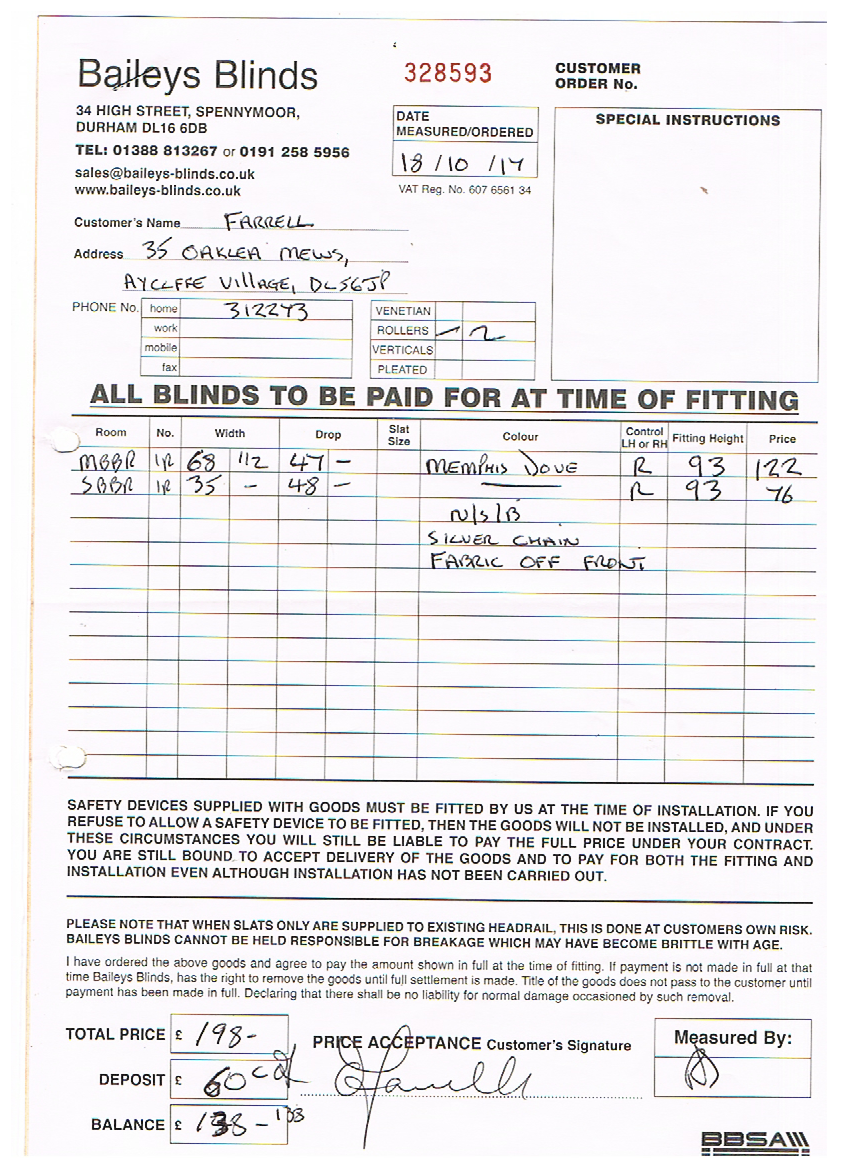 Baileys Blinds
34 HIGH STREET, SPENNYMOOR,
DURHAM DL16 6DB
TEL: 01388 813267 or 0191 258 5956
sales@baileys-blinds.co.uk
www.baileys-blinds.co.uk
328593
DATE
MEASURED/ORDERED
18/10/17
VAT Reg. No. 607 6561 34
CUSTOMER
ORDER No.
SPECIAL INSTRUCTIONS
Customer's Name FARRELL
Address 35 OAKLEA MEWS,
AYCLFFE VILLAGE, DL56JP
PHONE No. home 312243
work
mobile
fax
VENETIAN
ROLLERS – 2
VERTICALS
PLEATED
ALL BLINDS TO BE PAID FOR AT TIME OF FITTING
Room No. Width Drop Slat Size Colour Control LH or RH Fitting Height Price
MBBR 1R 68 1/2 47 – MEMPHIS DOVE R 93 122
SBBR 1R 35 – 48 – —— R 93 76
N/S/B
SILVER CHAIN
FABRIC OFF FRONT
SAFETY DEVICES SUPPLIED WITH GOODS MUST BE FITTED BY US AT THE TIME OF INSTALLATION. IF YOU
REFUSE TO ALLOW A SAFETY DEVICE TO BE FITTED, THEN THE GOODS WILL NOT BE INSTALLED, AND UNDER
THESE CIRCUMSTANCES YOU WILL STILL BE LIABLE TO PAY THE FULL PRICE UNDER YOUR CONTRACT.
YOU ARE STILL BOUND TO ACCEPT DELIVERY OF THE GOODS AND TO PAY FOR BOTH THE FITTING AND
INSTALLATION EVEN ALTHOUGH INSTALLATION HAS NOT BEEN CARRIED OUT.
PLEASE NOTE THAT WHEN SLATS ONLY ARE SUPPLIED TO EXISTING HEADRAIL, THIS IS DONE AT CUSTOMERS OWN RISK.
BAILEYS BLINDS CANNOT BE HELD RESPONSIBLE FOR BREAKAGE WHICH MAY HAVE BECOME BRITTLE WITH AGE.
I have ordered the above goods and agree to pay the amount shown in full at the time of fitting. If payment is not made in full at that
time Baileys Blinds, has the right to remove the goods until full settlement is made. Title of the goods does not pass to the customer until
payment has been made in full. Declaring that there shall be no liability for normal damage occasioned by such removal.
TOTAL PRICE £ 198-
PRICE ACCEPTANCE Customer's Signature
Measured By:
DEPOSIT £ 60
BALANCE £ 138 - 138
BBSA